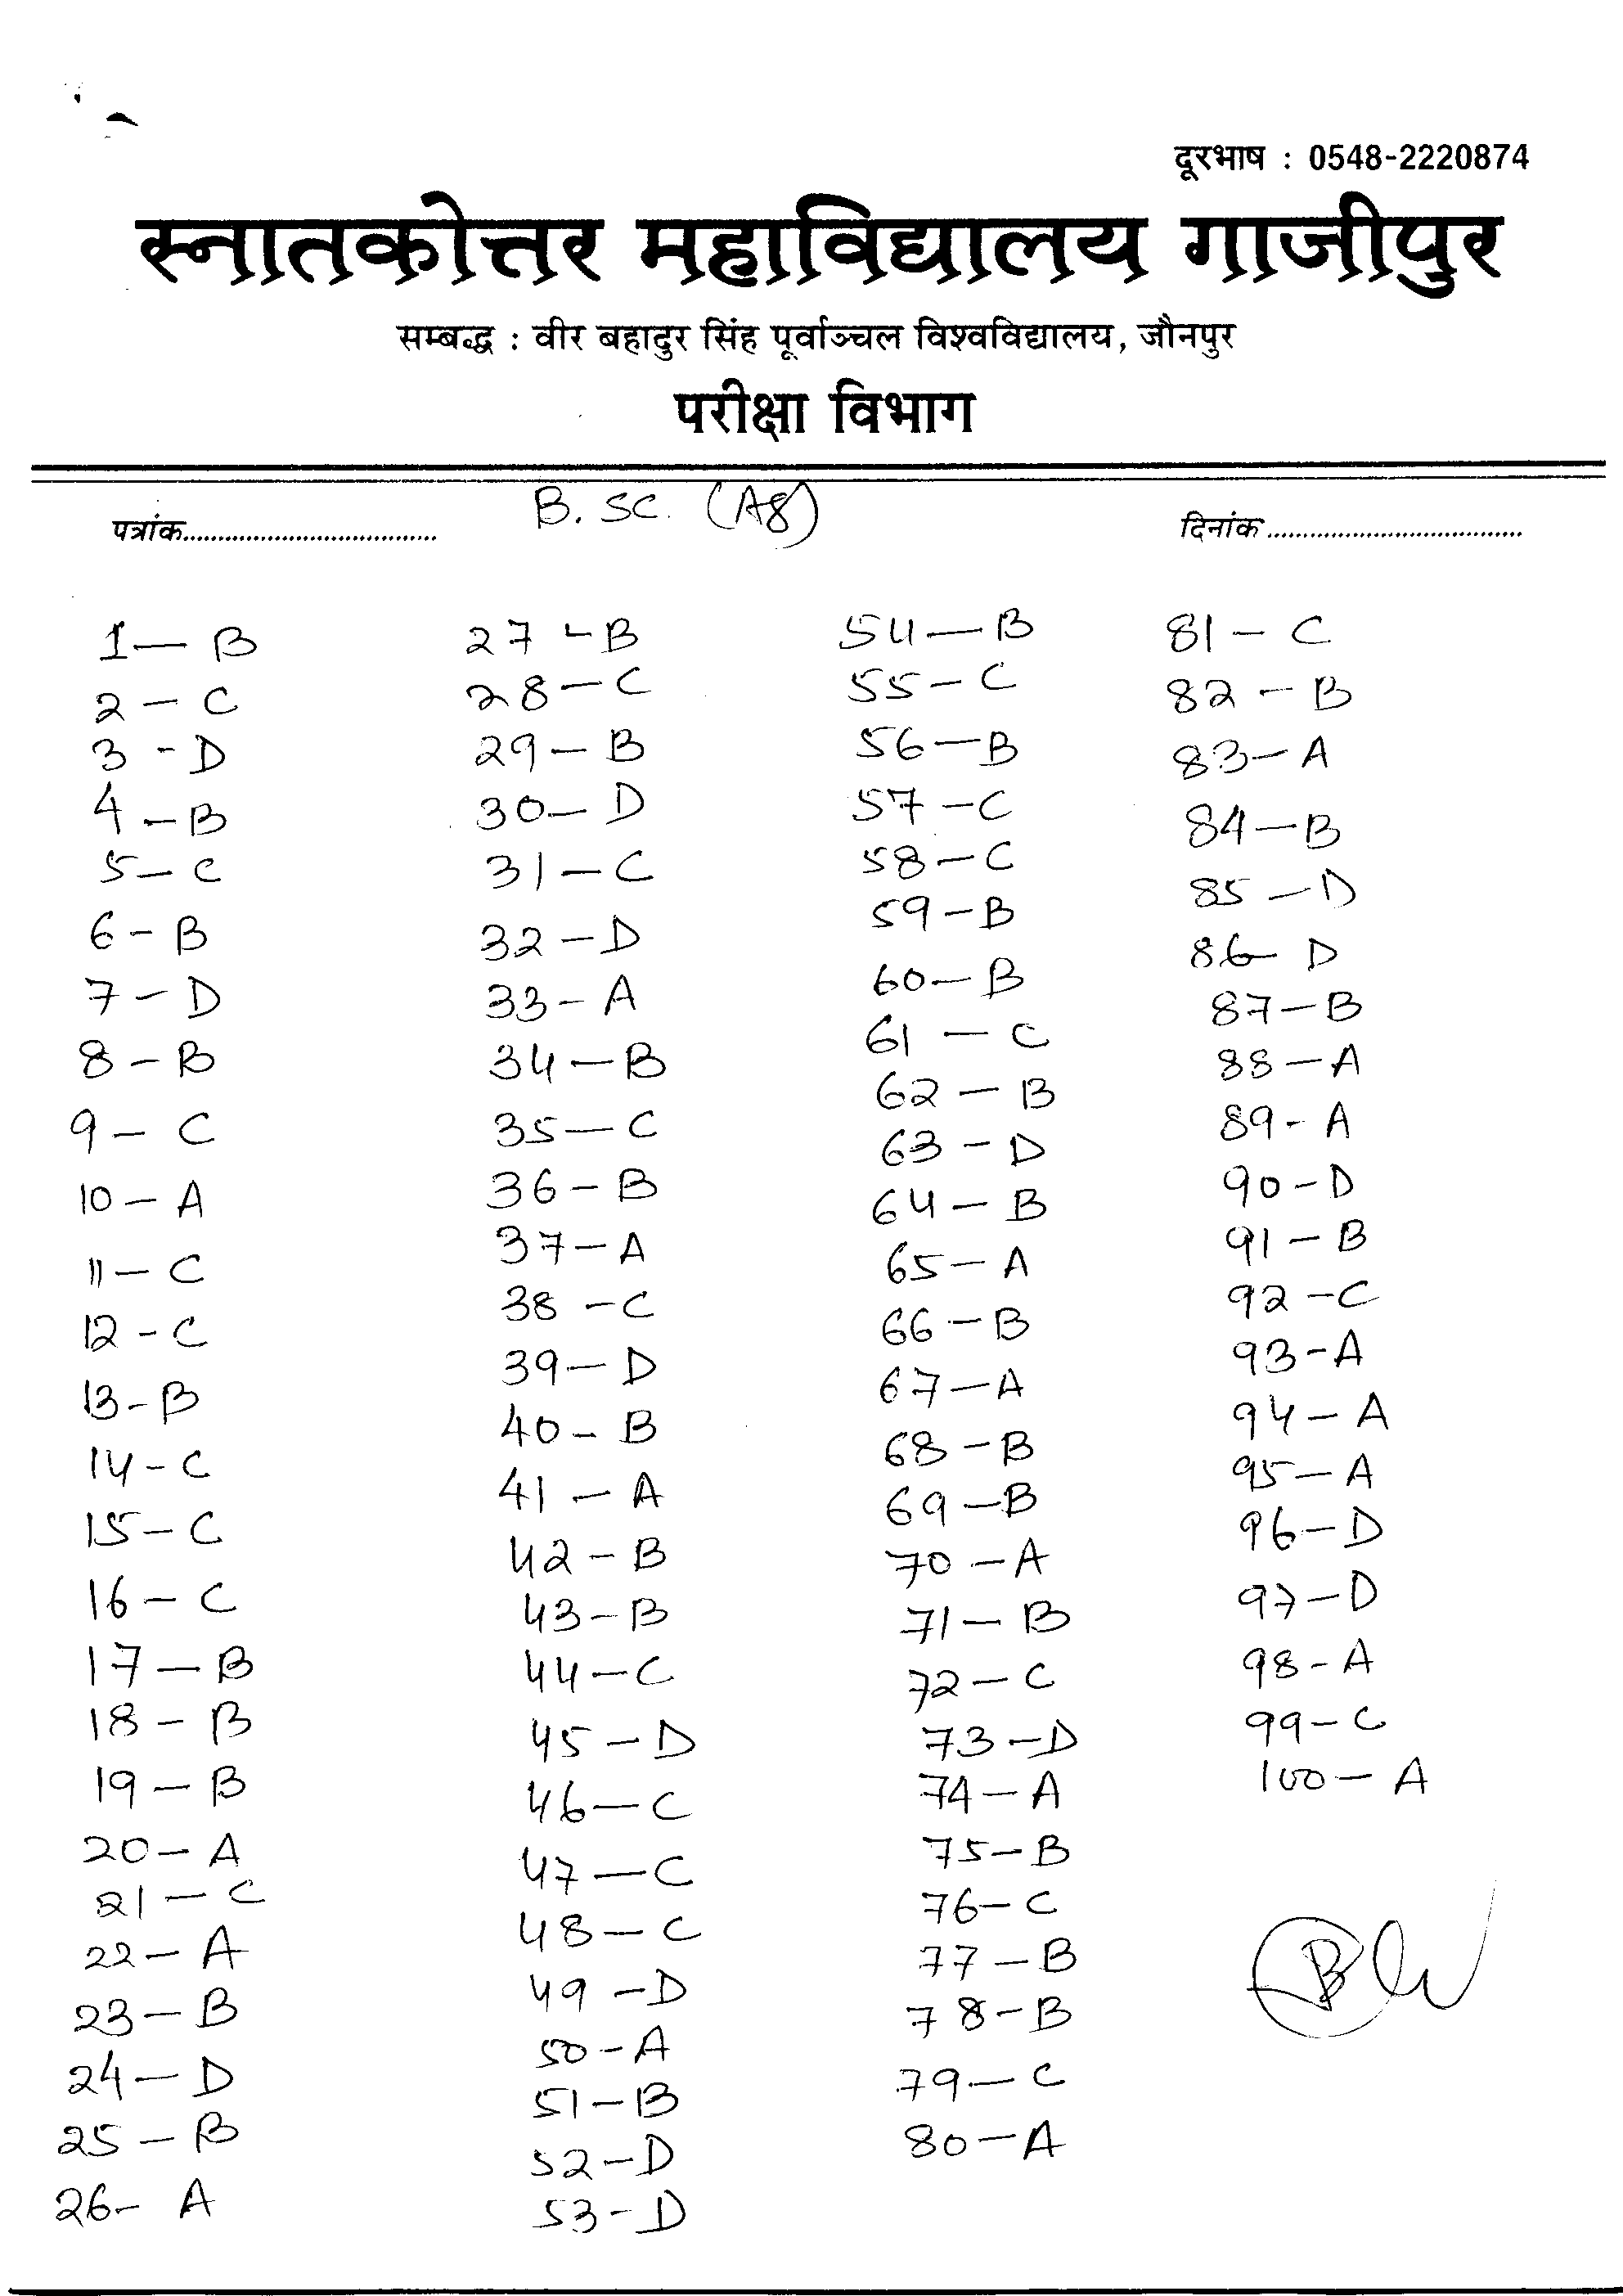 दूरभाष : 0548-2220874
स्नातकोत्तर महाविद्यालय गाजीपुर
सम्बद्ध : वीर बहादुर सिंह पूर्वाञ्चल विश्वविद्यालय, जौनपुर
परीक्षा विभाग
B. SC. (Ag)
पत्रांक....................................
दिनांक....................................
1 — B
2 — C
3 - D
4 — B
5 — C
6 - B
7 - D
8 - B
9 - C
10 - A
11 - C
12 - C
13 - B
14 - C
15 - C
16 - C
17 - B
18 - B
19 - B
20 - A
21 - C
22 - A
23 - B
24 - D
25 - B
26 - A
27 - B
28 - C
29 - B
30 - D
31 - C
32 - D
33 - A
34 - B
35 - C
36 - B
37 - A
38 - C
39 - D
40 - B
41 - A
42 - B
43 - B
44 - C
45 - D
46 - C
47 - C
48 - C
49 - D
50 - A
51 - B
52 - D
53 - D
54 - B
55 - C
56 - B
57 - C
58 - C
59 - B
60 - B
61 - C
62 - B
63 - D
64 - B
65 - A
66 - B
67 - A
68 - B
69 - B
70 - A
71 - B
72 - C
73 - D
74 - A
75 - B
76 - C
77 - B
78 - B
79 - C
80 - A
81 - C
82 - B
83 - A
84 - B
85 - D
86 - D
87 - B
88 - A
89 - A
90 - D
91 - B
92 - C
93 - A
94 - A
95 - A
96 - D
97 - D
98 - A
99 - C
100 - A